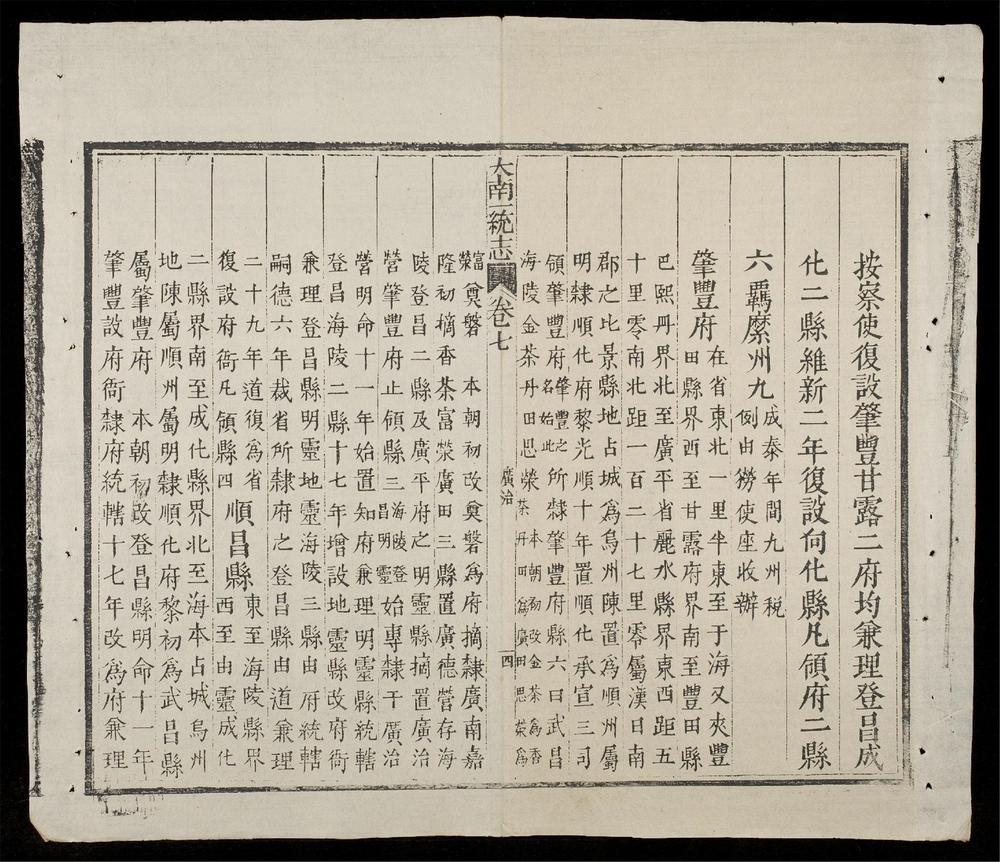 按察使復設肇豐甘露二府均兼理登昌成
化二縣維新二年復設向化縣凡領府二縣
六羈縻州九成泰年間九州稅
例由撈使座收辦
肇豐府在省東北一里半東至于海又夾豐
田縣界西至甘露府界南至豐田縣
巴熙丹界北至廣平省麗水縣界東西距五
十里零南北距一百二十七里零屬漢日南
郡之比景縣地占城為烏州陳置為順州屬
明隸順化府黎光順十年置順化承宣三司
領肇豐府肇豐之
名始此所隸肇豐府縣六曰武昌
海陵金茶丹田思榮本朝初改金茶為香
茶丹田為廣田思榮為
大南一統志 卷七 廣治 四
富
榮奠磐 本朝初改奠磐為府摘隸廣南嘉
隆初摘香茶富榮廣田三縣置廣德營存海
陵登昌二縣及廣平府之明靈縣摘置廣治
營肇豐府止領縣三海陵登
昌明靈始專隸于廣治
營明命十一年始置知府兼理明靈縣統轄
登昌海陵二縣十七年增設地靈縣改府衙
兼理登昌縣明靈地靈海陵三縣由府統轄
嗣德六年裁省所隸府之登昌縣由道兼理
二十九年道復為省
復設府衙凡領縣四順昌縣東至海陵縣界
西至由靈成化
二縣界南至成化縣界北至海本占城烏州
地陳屬順州屬明隸順化府黎初為武昌縣
屬肇豐府 本朝初改登昌縣明命十一年
肇豐設府衙隸府統轄十七年改為府兼理